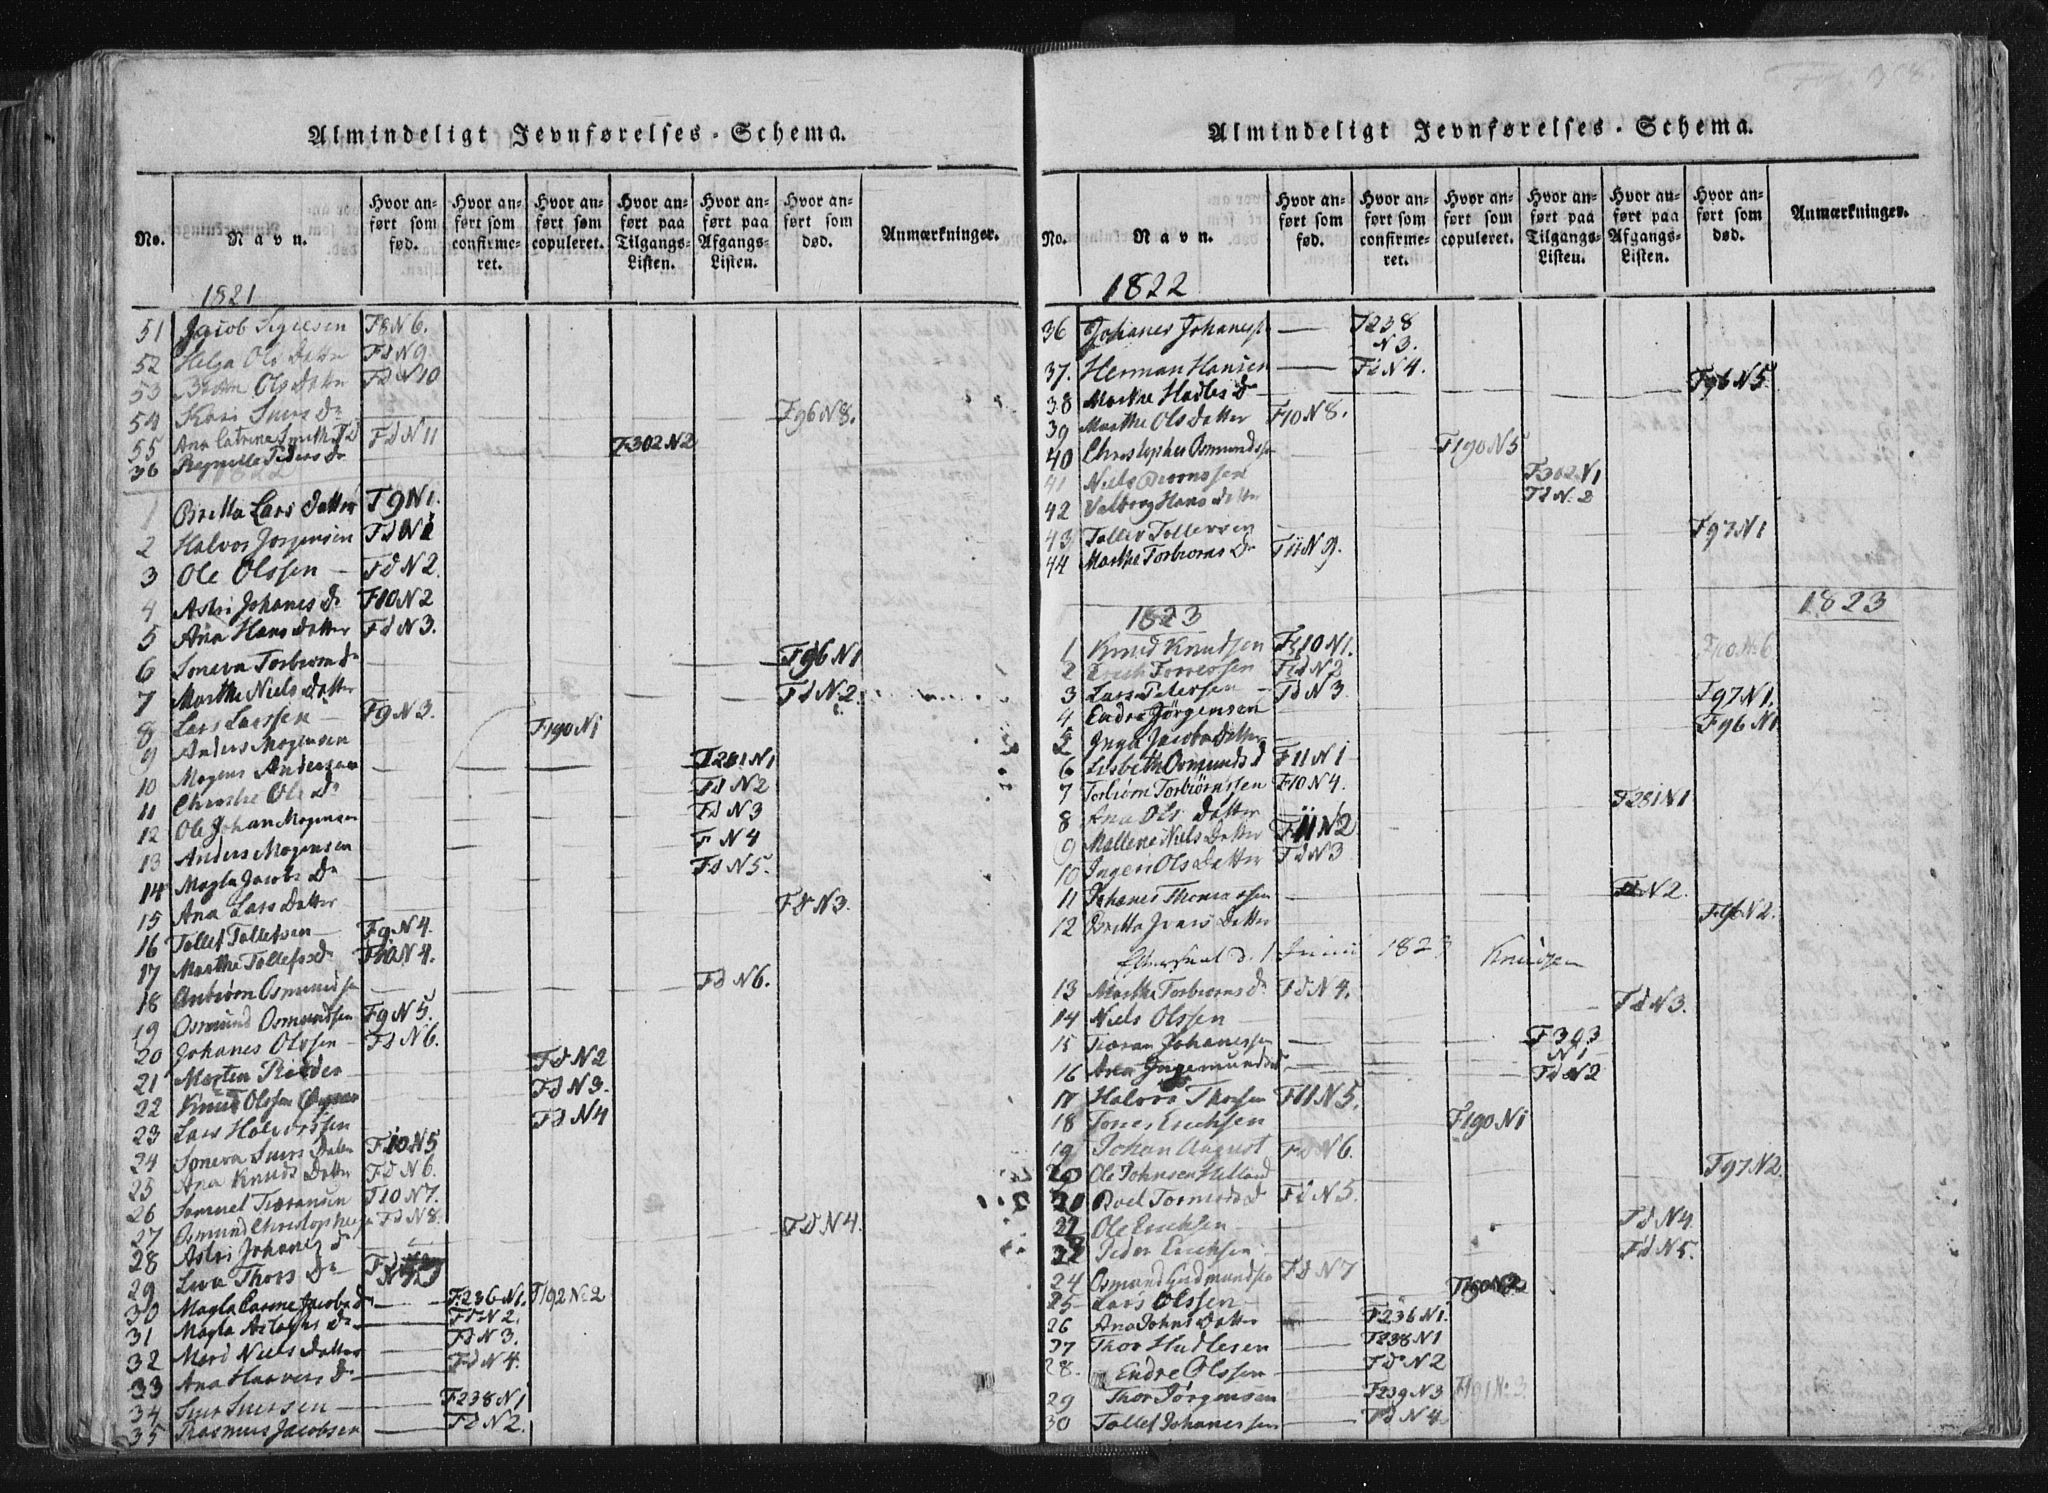 Almindeligt Jevnførelses-Schema.
No.
Navn.
Hvor anført som fød.
Hvor anført som confirmeret.
Hvor anført som copuleret.
Hvor anført paa Tilgangs-Listen.
Hvor anført paa Afgangs-Listen.
Hvor anført som død.
Anmærkninger.
1821
51 Jacob F8N6.
52 Helga Ols Datter Fd N9
53 Ols Datter Fd N10
54 Kari Siurs Dr F96N8.
55 Ana Catrina Smith Fd N11
56 Regnille Peders Dr F302N2
1822
1 Britta Lars Datter F9N1.
2 Halvor Jorgensen Fd N1
3 Ole Olssen — Fd N2.
4 Astri Johanes Dr F10N2
5 Ana Hans Datter Fd N3.
6 Soneva Torbiorns Dr F96N1
7 Marthe Niels Datter Fd N2.
8 Lars Larssen — F9N3.
9 Anders Mogensen F190N1
10 Mogens Andersen F281N1
11 Christie Ols Dr Fd N2
12 Ole Johan Mogensen Fd N3
13 Anders Mogensen F N4
14 Magla Jacobs Dr Fd N5.
15 Ana Lars Datter Fd N3.
16 Tollef Tollefsen — F9N4.
17 Marthe Tollefs Dr F10N4.
18 Osmundsen Fd N6.
19 Osmund Osmundsen F9N5.
20 Johanes Olssen — Fd N6.
21 Morten Fd N2
22 Knud Olssen Fd N3.
23 Lars Halvorssen Fd N4
24 Soneva Siurs Datter F10N5
25 Ana Knuds Datter Fd N6.
26 Samuel F10N7.
27 Osmund Christophersen Fd N8.
28 Astri Johanes Dr Fd N4.
29 Siva Thors Dr Fd
30 Magla Jacobs Dr — F236N1. F192No2
31 Magla Aslags Dr — Fd N2.
32 Mari Niels Datter — Fd N3.
33 Ana Haavers Dr — Fd N4.
34 Siur Siursen — F238N1
35 Rasmus Jacobsen — Fd N2.
Almindeligt Jevnførelses-Schema.
No.
Navn.
Hvor anført som fød.
Hvor anført som confirmeret.
Hvor anført som copuleret.
Hvor anført paa Tilgangs-Listen.
Hvor anført paa Afgangs-Listen.
Hvor anført som død.
Anmærkninger.
1822
36 Johanes Johanessen — F238 N3.
37. Herman Hansen — Fd N4.
38 Marthe Dr F96N5.
39 Marthe Ols Datter F10N8.
40 Christopher Osmundssen F190N5
41 Niels F302N1
42 Valborg Hans Datter Fd N.2
43 Tollef Tollefsen F97N1
44 Marthe Torbiorns Dr F11N9.
1823
1823
1 Knud Knudsen F10N1.
2 Erich Fd N2
3 Lars Petersen — Fd N3
4 Endre Jørgensen F97N1.
5 Inga Jacobs Datter F96N1
6 Lisbeth Osmunds d F11N1
7 Torbiørn Torbiørnssen F10N4.
8 Ana Ols Datter F281N1
9 Mallene Niels Datter F11N2
10 Inger Ols Datter Fd N3
11 Johanes Thomassen Fd N2.
12 Britta Ivars Datter F96N2.
Efterseet d. 1 Junii 1823 Knudsen
13 Marthe Torbiorns Dr Fd N4.
14 Niels Olssen Fd N3.
15 Johanessen F303 N1
16 Ana Fd N2
17 Halvor Thorsen F11N5.
18 Jones Erichsen F190N1
19 Johan August Fd N6.
20 Ole Johnsen Helland F97N2.
21 Tormods d Fd N5.
22 Ole Erichsen Fd N4
23 Peder Erichsen Fd N5.
24 Osmund Gudmundsen Fd N7
25 Lars Olssen F190N2
26 Ana Johns Datter F236N1.
27 Thor Hadlesen F238N1
28. Endre Olssen Fd N2
29 Thor Jørgensen F239N3 F191No3
30 Tollef Johanessen Fd N4